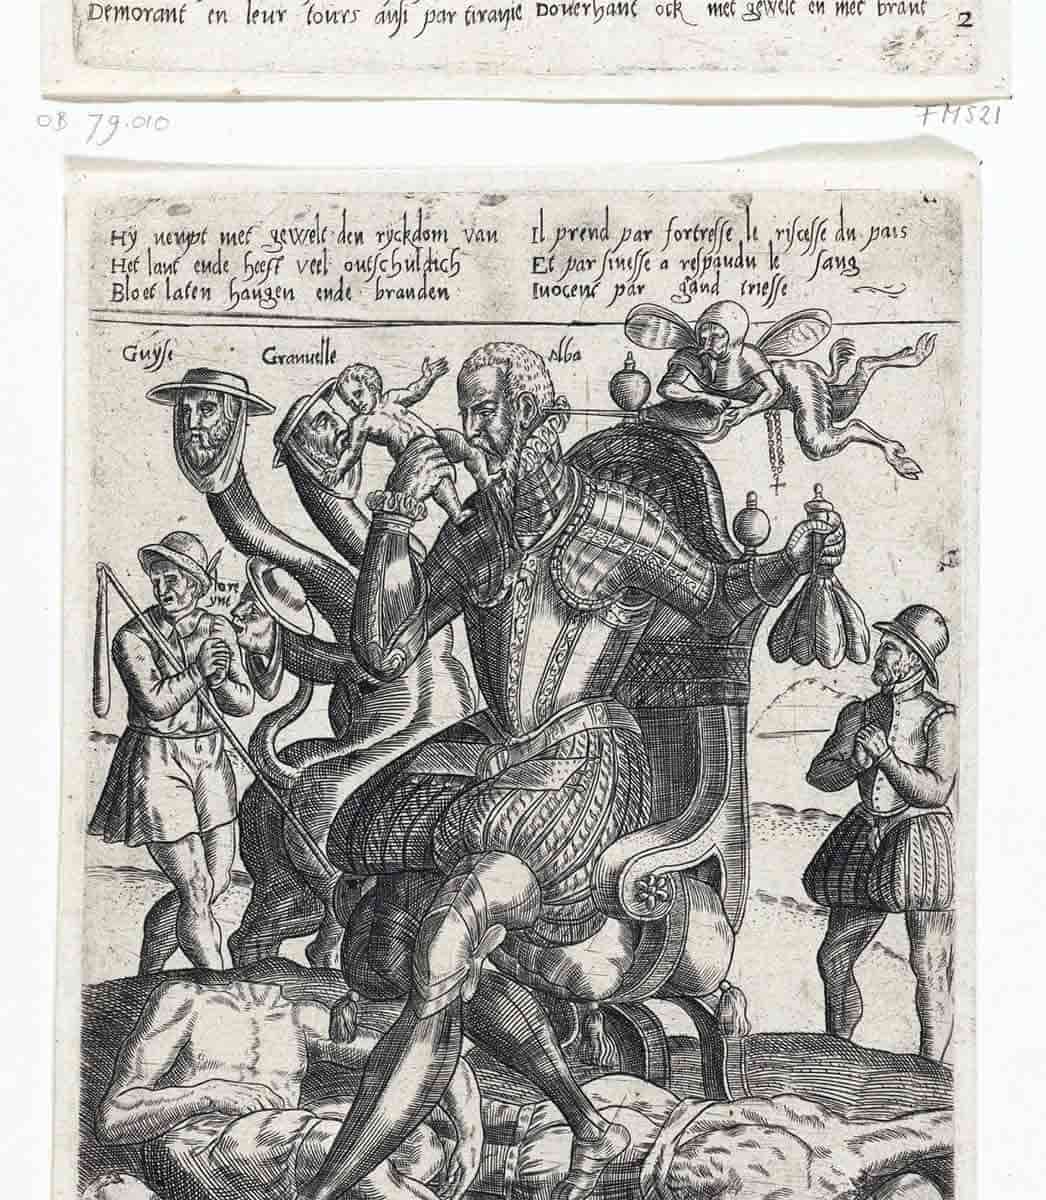 Demorant en leur tours ausi par tiranie Doverhant ock met gewelt en met brant
2
OB 79.010
FM521
Hÿ neupt met gewelt den rÿckdom van
Het lant ende heeft veel ontschuldich
Bloet laten hangen ende branden
Il prend par fortresse le riscesse du pais
Et par finesse a respandu le sang
Inocent par gand triesse
Guÿse
Granvelle
Alba